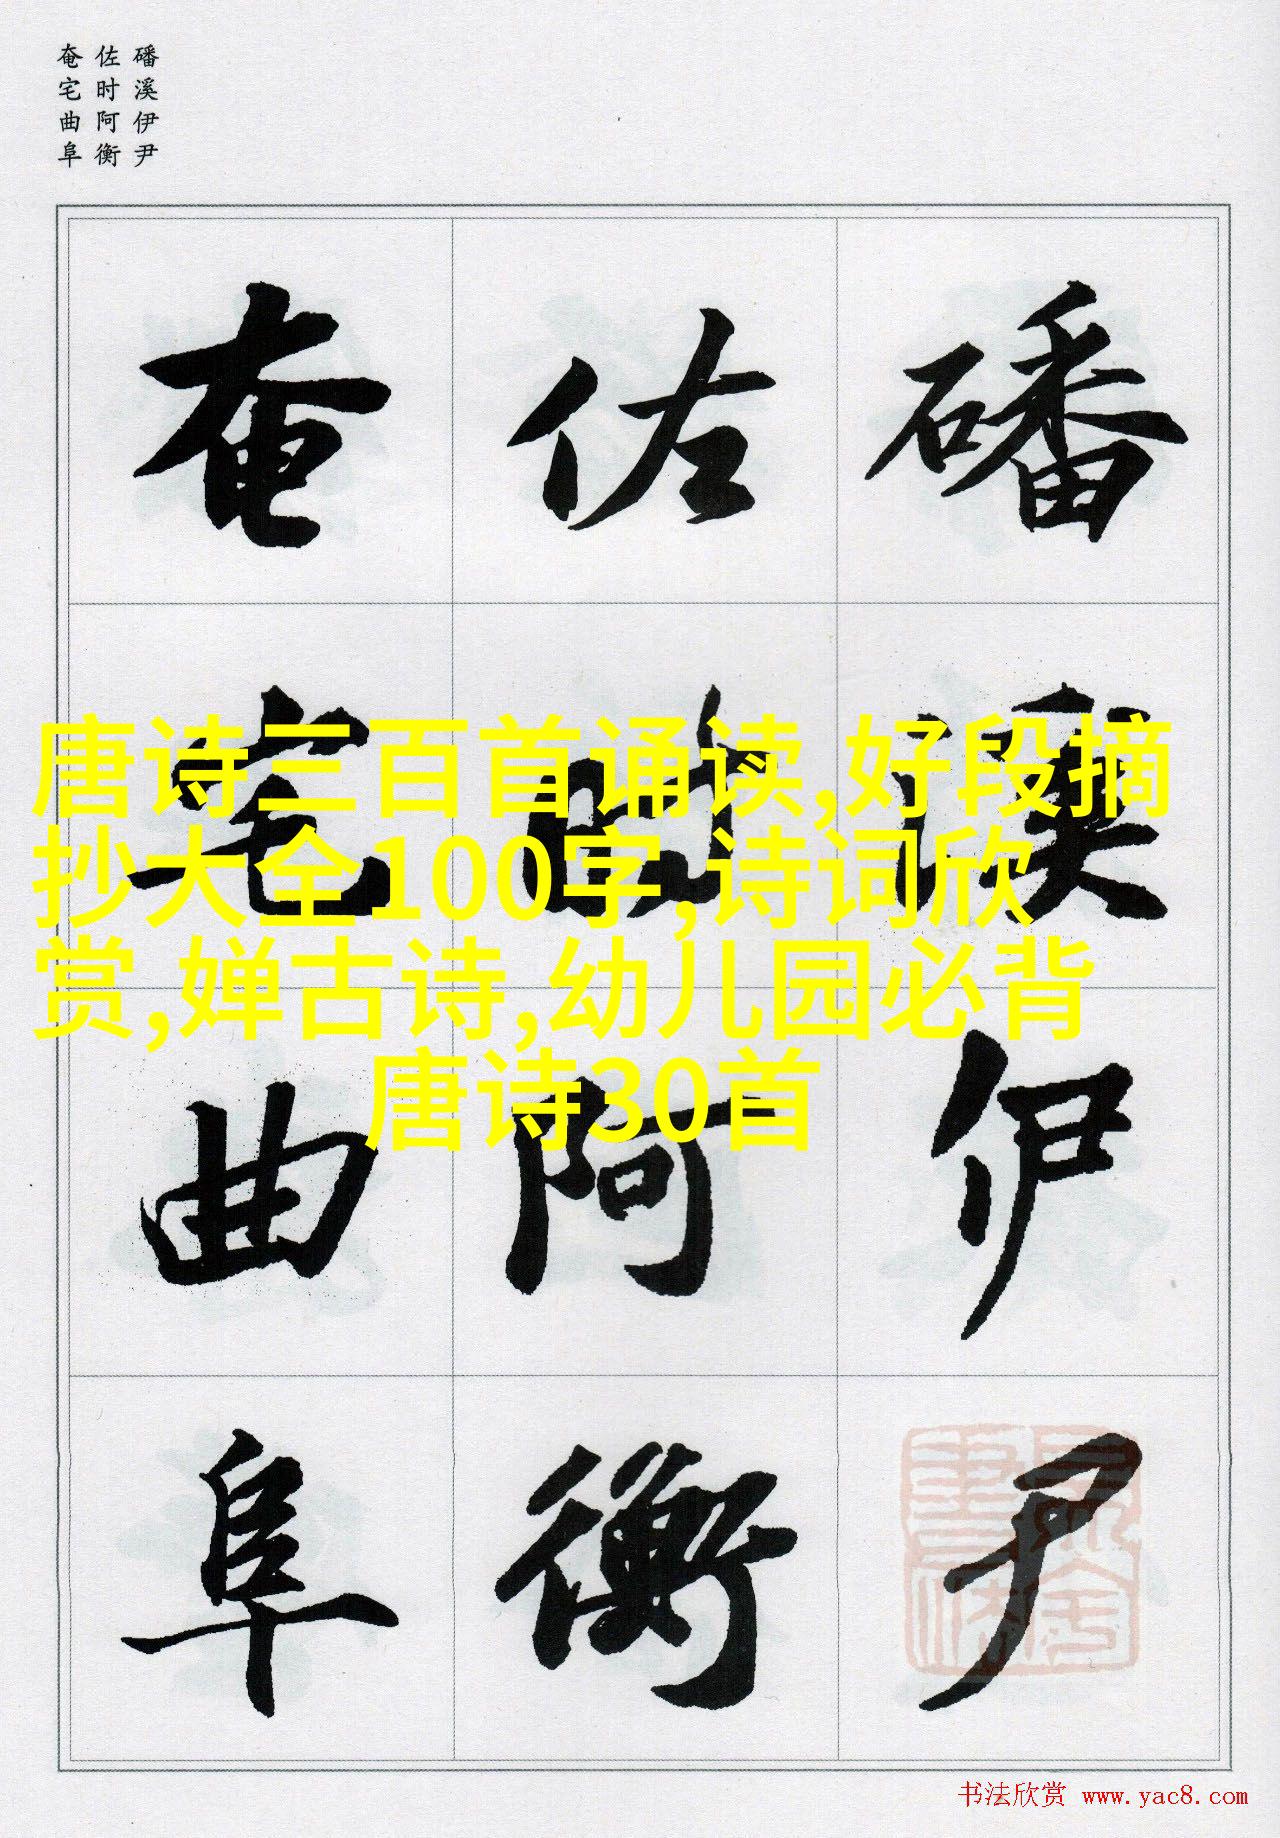 磻溪伊尹
佐时阿衡
奄宅曲阜
磻溪伊尹
佐时阿衡
奄宅曲阜
唐诗三百首诵读,好段摘
抄大全100字,诗词欣
赏,婵古诗,幼儿园必背
唐诗30首
书法欣赏 www.yac8.com